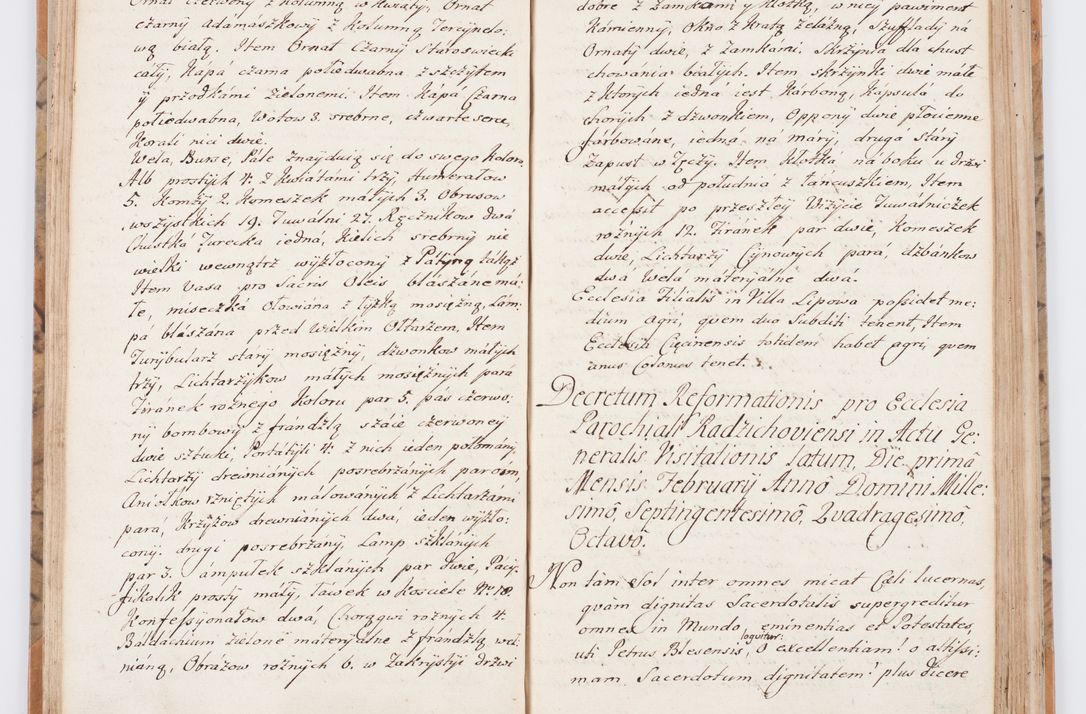 Ornat czerwony z kolumną w kwiaty, Ornat
czarny adamaszkowy z Kolumną Tercynelo:
wą białą. Item Ornat Czarny Staroswiecki
cały, Kápá czarna połiedwabna z szczytem
y przodkámi zielonemi. Item Kápá Czarna
połiedwabna, Wotow 3. srebrne, czwarte serce,
Korali nici dwie.
Wela, Burse, Pale znayduią się do swego Koloru
Alb prostych 4. z Kwiátámi trzy, Humerałow
5. Komży 2. Komeszek máłych 3. Obrusow
wszystkich 19. Tuwalni 27. Ręcznikow dwá
Chustká Turecka iedná, Kielich srebrny nie
wielki wewnątrz wyzłocony z Patyną takąż
Item Vasa pro Sacris Oleis blászáne má:
łe, miseczká Ołowiána z łyżką mosiężną, Lám:
pá blászána przed Wielkim Ołtarzem. Item
Turybularz stáry mosiężny, dzwonkow máłych
trzy, Lichtarzykow máłych mosiężnych pará
Firánek rożnego Koloru par 5. pas czerwo:
ny bombowy z frandzlą száie czerwoney
dwie sztuki, Portátyli 4. z nich ieden połomány,
Lichtarzy drewniánych posrebrzánych par osm,
Aniołkow rzniętych málowánych z Lichtarzami
pará, Krzyżow drewniánych dwá, ieden wyzło:
cony. drugi posrebrzány, Lamp szklánych
par 3. ámpułek szklánych par dwie, Pácy:
fikalik prosty máły, Ławek w Kosciele Nro 18.
Konfessyonałow dwá, Chorągwi rożnych 4.
Baldachium zielone materyalne z frandzlą weł:
nianą, Obrázow rożnych 6. w Zakrystyi drzwi
dobre z zamkami y Kłotką, w niey pawiment
Kámienny, Okno z Kratą żelázną, Szufflady ná
Ornaty dwie, z zamkámi. Skrzynia dla chust
chowánia białych. Item skrzynki dwie máłe
z Ktorych iedná iest Kárboną, Kápsulá do
chorych z dzwonkiem, Oppony dwie płocienne
fárbowáne, iedná ná máry, drugá stáry
Zapust w Tęczy. Item Kłotká ná boku u drzwi
máłych od południá z łańcuszkiem, Item
accessit po przeszłey Wizycie Tuwalniczek
rożnych 12. Firánek par dwie, Komeszek
dwie, Lichtarzy Cynowych pará, dzbánkow
dwá Welá máteryálne dwá.
Ecclesia Filialis in Villa Lipowa possidet me:
dium agri, quem duo Subditi tenent, Item
Ecclesia Cięcinensis totidem habet agri, quem
unus Colonus tenet.
Decretum Reformationis pro Ecclesia
Parochiali Radzichoviensi in Actu Ge:
neralis Visitationis latum, Die primâ
Mensis February Annô Domini Mille:
simô, Septingentesimô, Quadragesimô,
Octavô.
Non tàm Sol inter omnes micat Cæli lucernas,
quam dignitas Sacerdotalis supergreditur
omnes in Mundo eminentias et Potestates,
uti Petrus Blesensis, loquitur: O excellentiam! o altissi:
mam Sacerdotum dignitatem! plus dicere